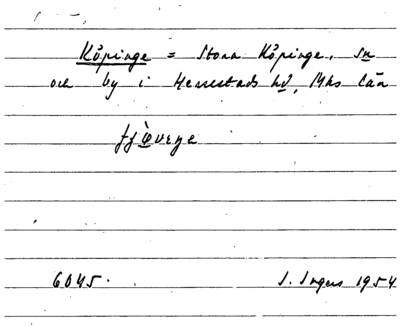 Köpinge = Stora Köpinge, sn
och by i Herrestads hd, Mhs län
6045.
I. Ingers 1954